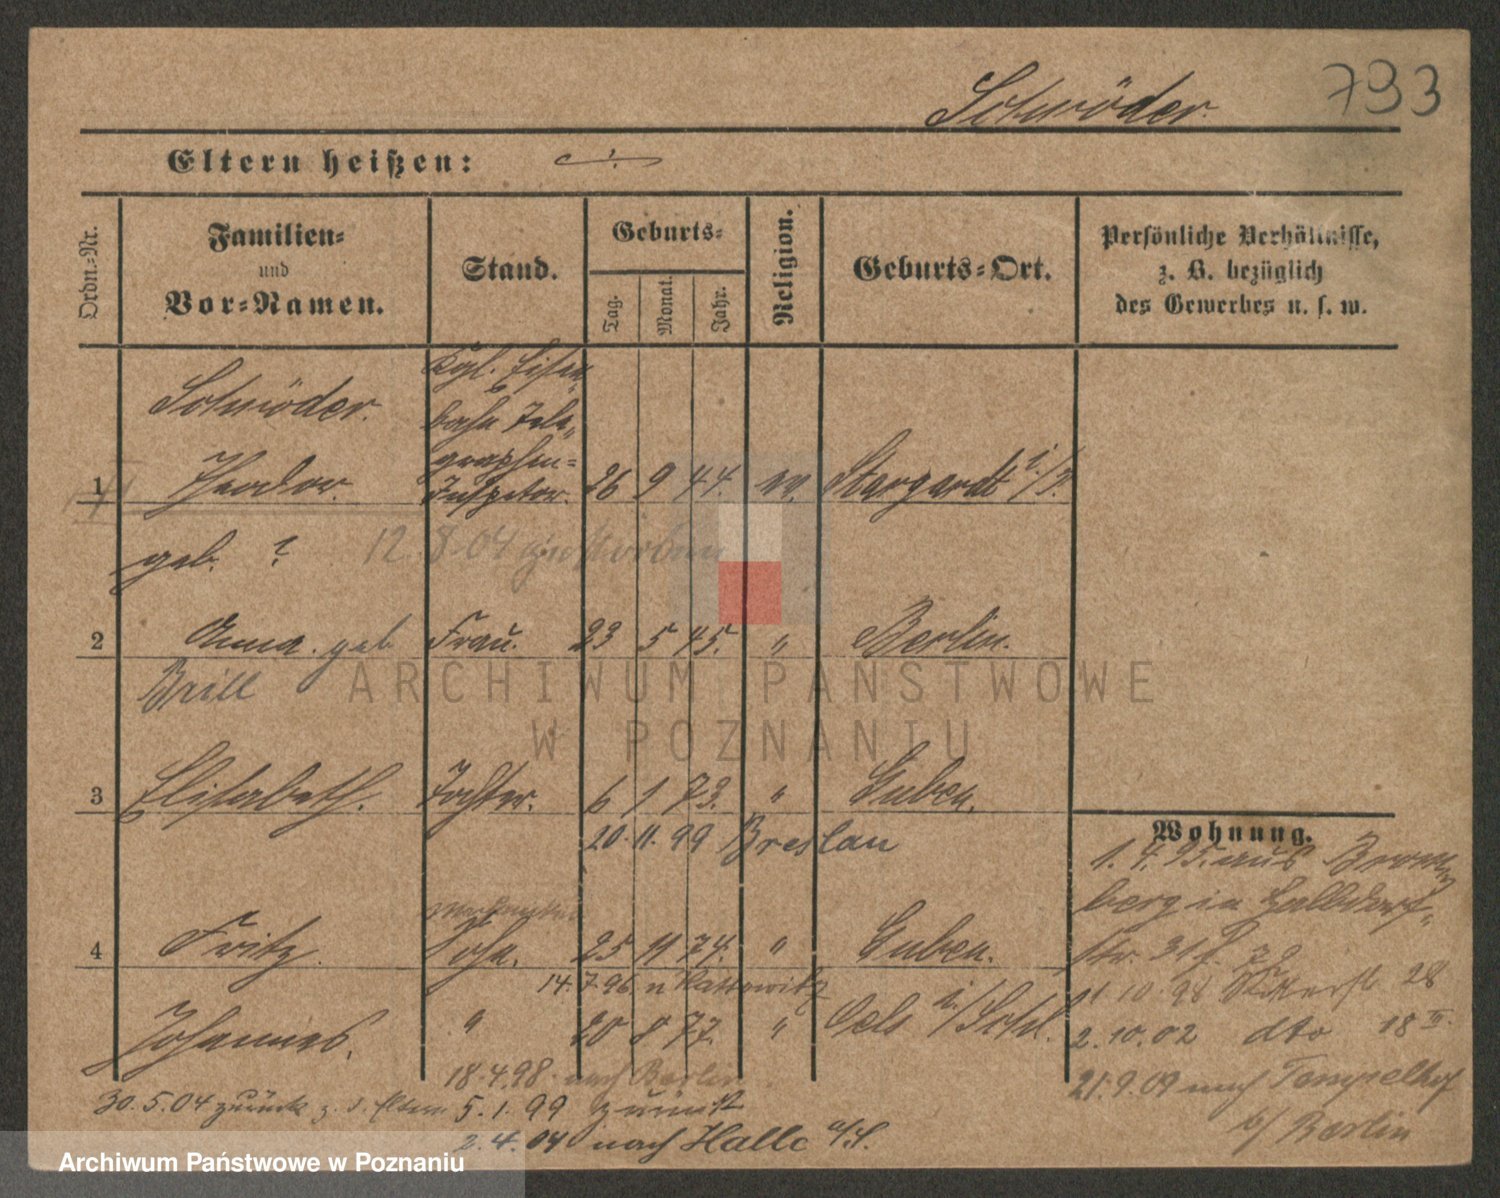 793
Schröder.
Eltern heißen:
Ordn.-Nr.
Familien-
und
Vor-Namen.
Stand.
Geburts-
Tag.
Monat.
Jahr.
Religion.
Geburts-Ort.
Persönliche Verhältnisse,
z. B. bezüglich
des Gewerbes u. s. w.
Schröder.
Kgl. Eisen-
bahn Tele-
graphen-
1 Theodor. Inspektor. 26 9 44. ev. Stargardt i/P.
geb. ? 12.8.04 gestorben
2 Anna. geb. Frau. 23 5 45. " Berlin.
Brill
3 Elisabeth. Tochter. 6 1 73. " Guben.
20.11.99 Breslau
4 Fritz. Sohn. 25 11 74. " Guben.
14.7.96 n Kattowitz
Johannes. " 20 8 77. " Oels i/Schl.
18.4.98 nach Berlin
30.5.04 zurück z. d. Eltern 5.1.99 zurück
2.4.04 nach Halle a/S.
Wohnung.
1.4.95. aus Brom-
berg in
str. 31
1.10.98 28
2.10.02 dto 18 III.
21.9.09 nach Tempelhof
b/ Berlin
ARCHIWUM PAŃSTWOWE
W POZNANIU
Archiwum Państwowe w Poznaniu